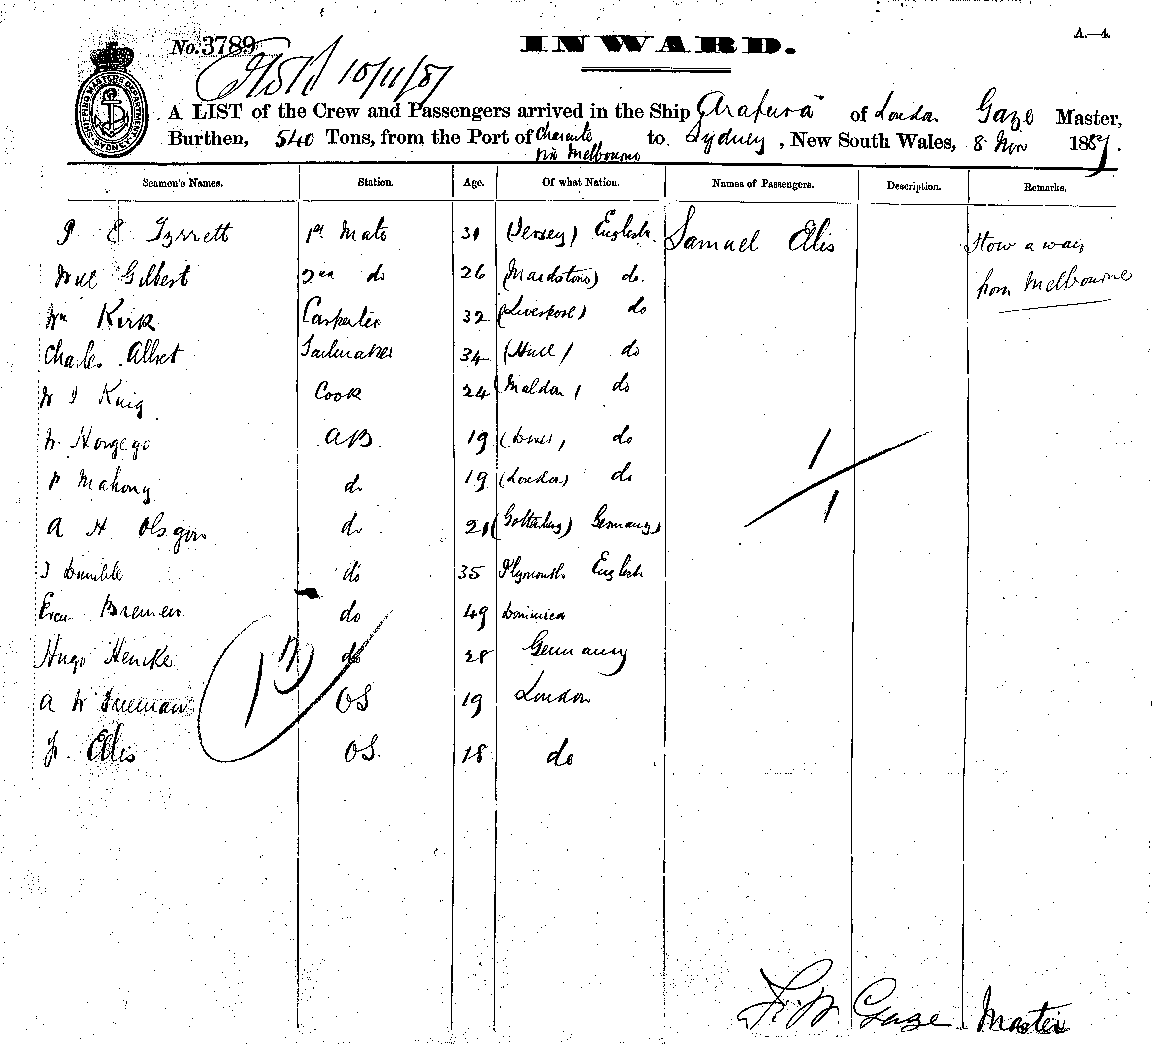 No. 3789
INWARD.
A.—4.
10/11/87
A LIST of the Crew and Passengers arrived in the Ship Arafura of London Gaze Master,
Burthen, 540 Tons, from the Port of Charente via Melbourne to Sydney, New South Wales, 8 Nov 1887.
SHIPPING MASTERS DEPARTMENT SYDNEY
Seamen's Names. Station. Age. Of what Nation. Names of Passengers. Description. Remarks.
P E Syrrett 1st Mate 31 (Jersey) English Samuel Ellis Stow away
Will Gilbert 2nd do 26 (Maidstone) do from Melbourne
Wm Kirk Carpenter 32 (Liverpool) do
Charles Albet Sailmaker 34 (Hull) do
W J Knig Cook 24 (Maldon) do
W Horgego AB 19 do
P Mahony do 19 (London) do
A H Olsgon do 21 (Gottenburg) Germany
J Dumble do 35 Plymouth English
Bremen do 49 Dominica
Hugo Hencke do 28 Germany
A W Freeman OS 19 London
Ellis OS 18 do
13
1
1
F. W. Gaze Master